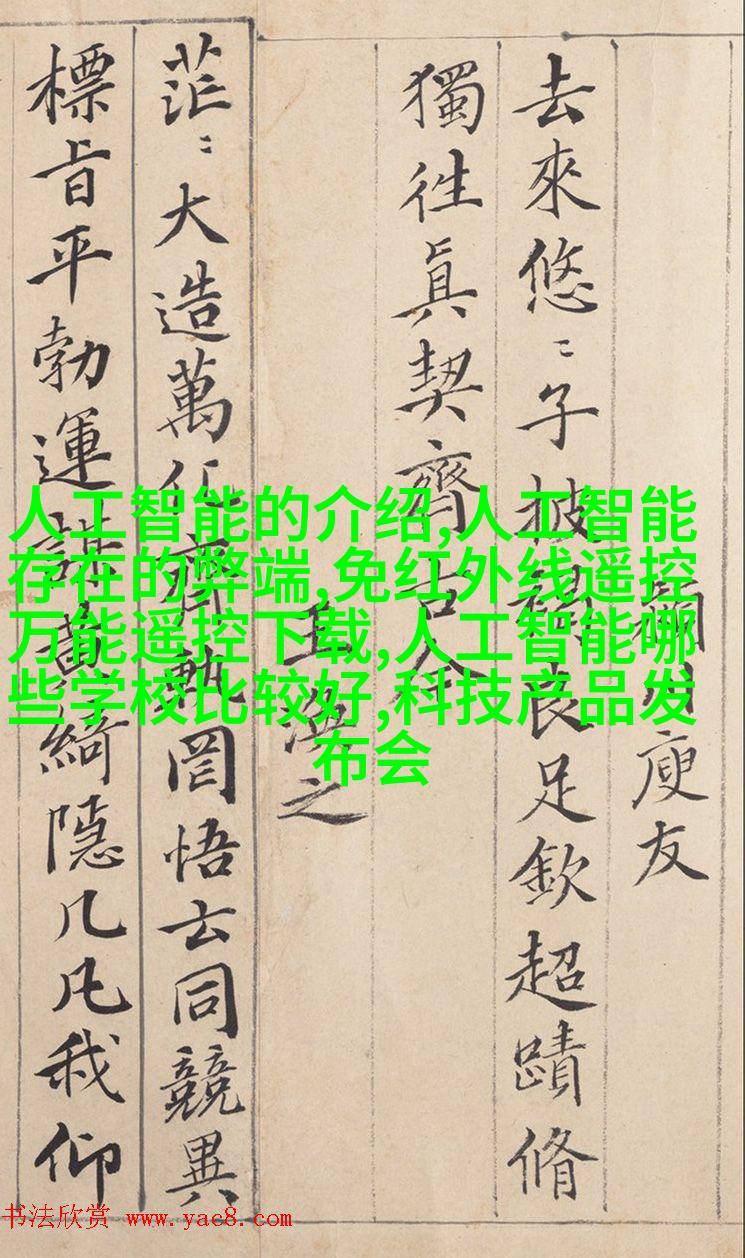 庾友
去來悠〻子披褐良足欽超蹟脩
獨往眞契齊古今
王渙之
茫〻大造萬化齊軌罔悟玄同競異
標旨平勃運謀黃綺隱几凡我仰
人工智能的介绍,人工智能
存在的弊端,免红外线遥控
万能遥控下载,人工智能哪
些学校比较好,科技产品发
布会
书法欣赏 www.yac8.com